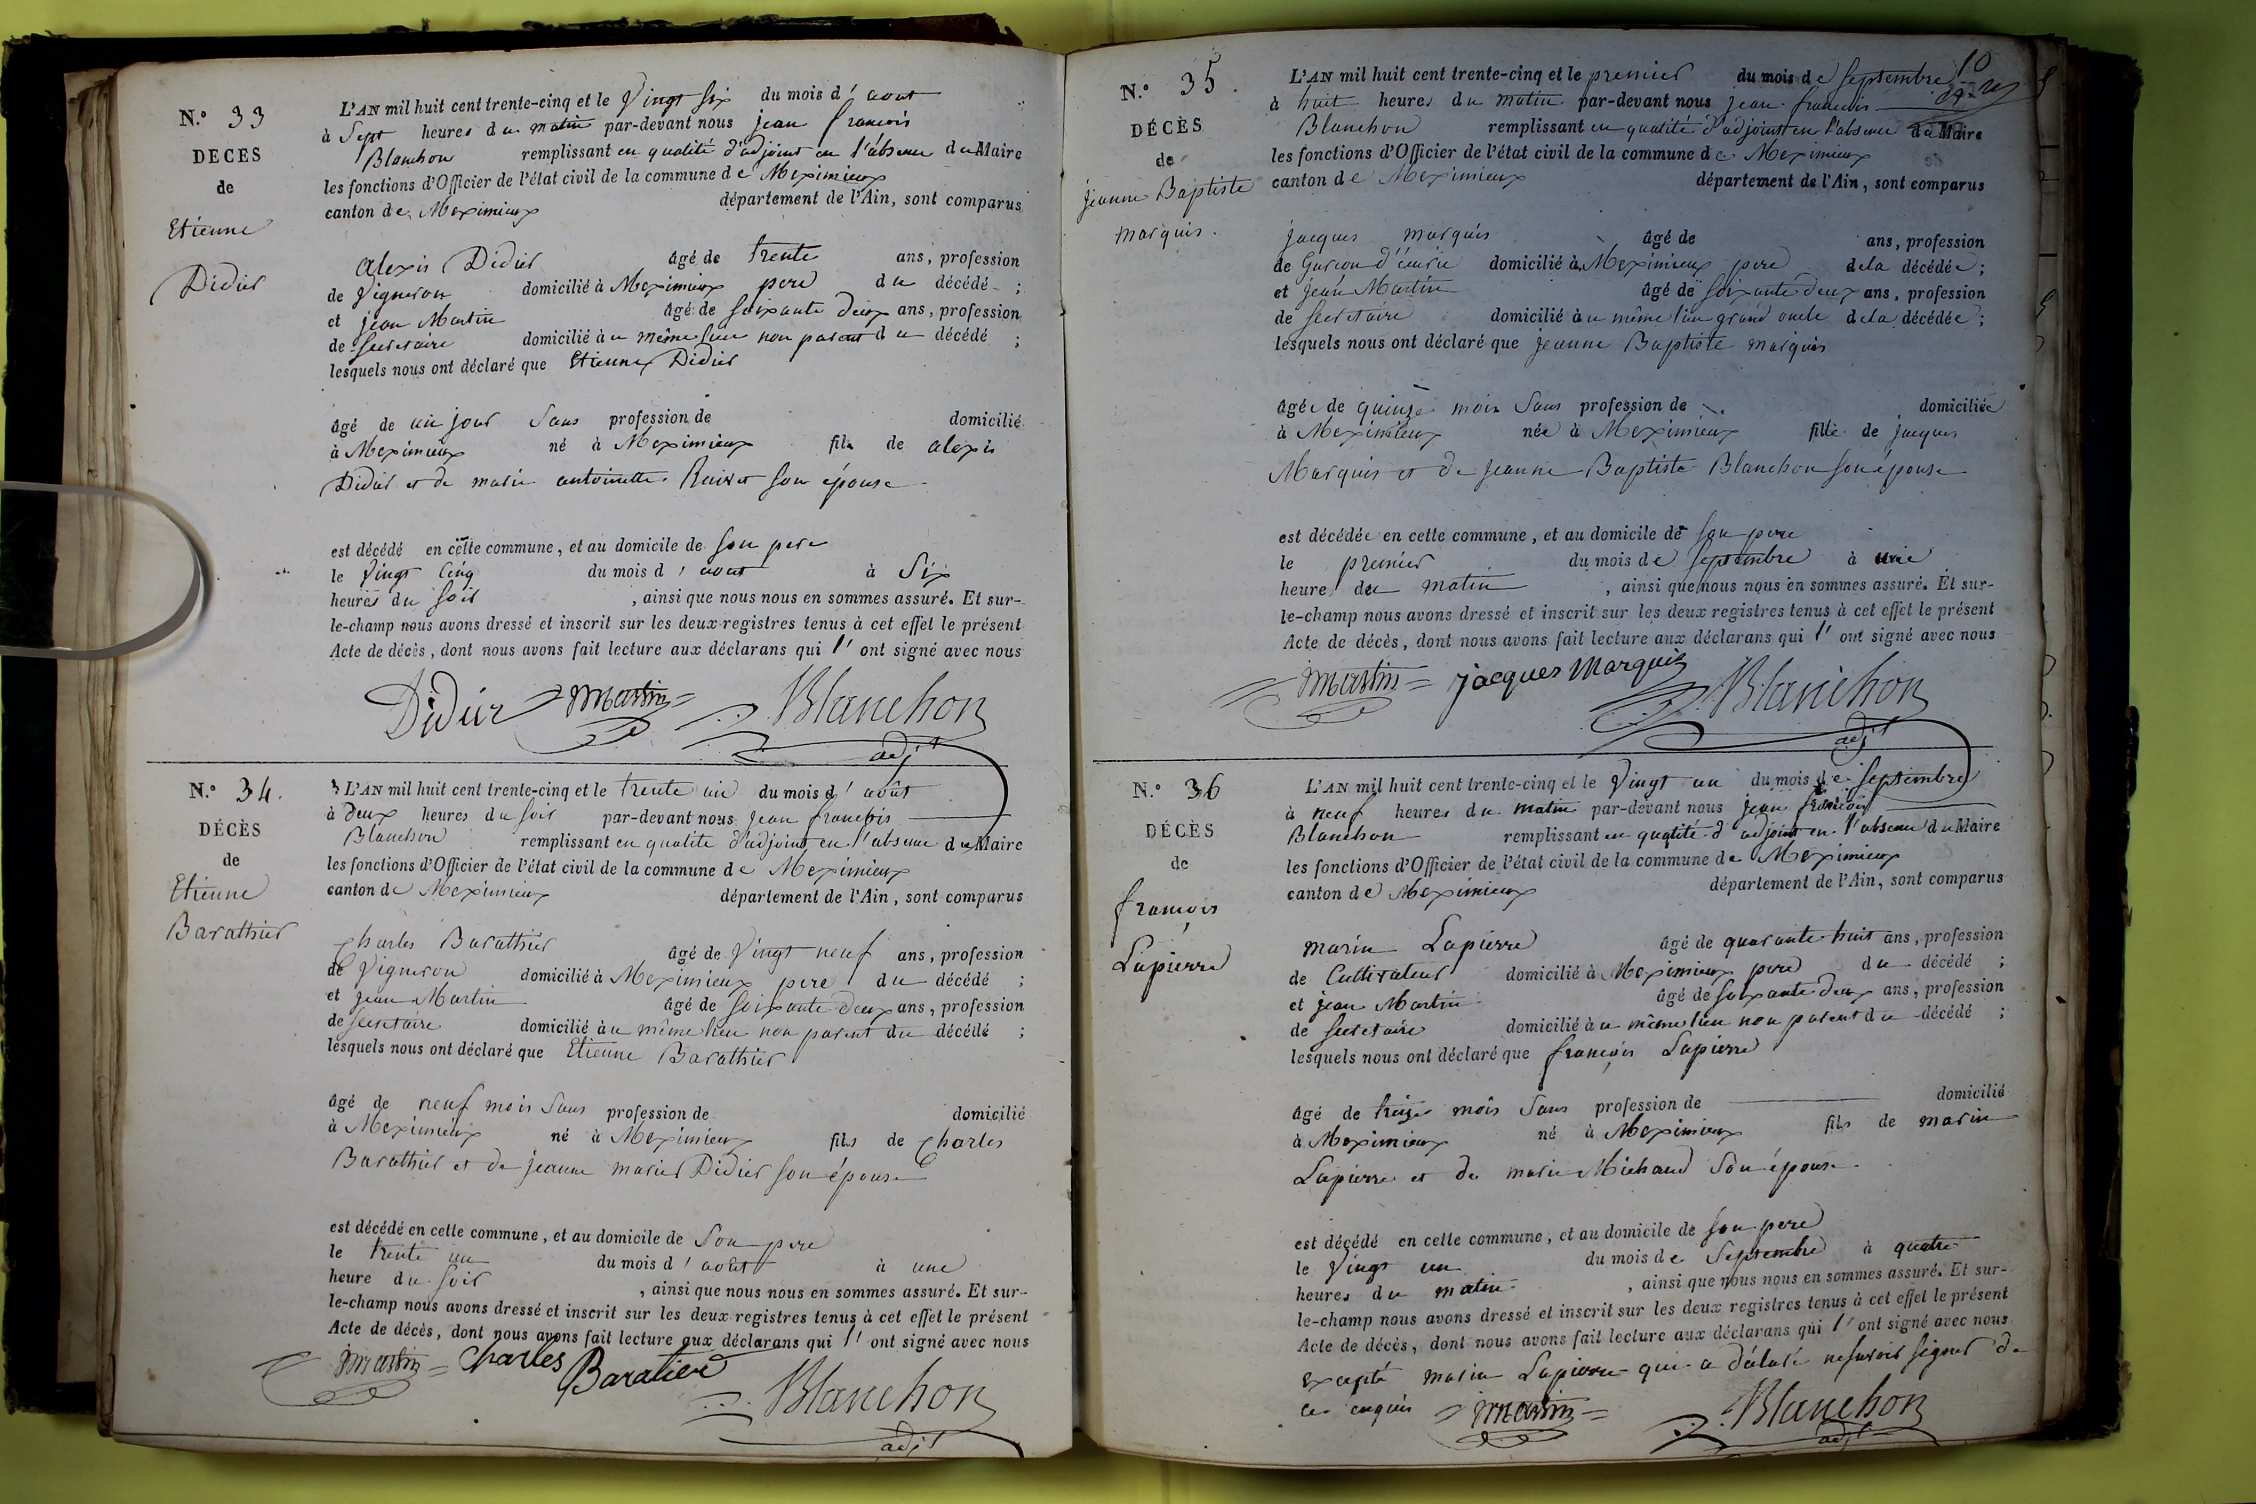 N.° 33
DÉCES
de
Etienne
Didier
L'AN mil huit cent trente-cinq et le Vingt Six du mois d'aout
à Sept heures du matin par-devant nous jean francois
Blanchon remplissant en qualité d'adjoint en l'absence du Maire
les fonctions d'Officier de l'état civil de la commune de Meximieux
canton de Meximieux département de l'Ain, sont comparus
alexis Didier âgé de trente ans, profession
de Vigneron domicilié à Meximieux pere du décédé ;
et jean Martin âgé de soixante deux ans, profession
de secretaire domicilié au même lieu non parent du décédé ;
lesquels nous ont déclaré que Etienne Didier
âgé de un jour Sans profession de domicilié
à Meximieux né à Meximieux fils de alexis
Didier et de marie antoinette son épouse
est décédé en cette commune, et au domicile de son pere
le Vingt Cinq du mois d'aout à Six
heures du soir , ainsi que nous nous en sommes assuré. Et sur-
le-champ nous avons dressé et inscrit sur les deux registres tenus à cet effet le présent
Acte de décès, dont nous avons fait lecture aux déclarans qui l'ont signé avec nous
Didier Martin Blanchon
adjt
N.° 34.
DÉCÈS
de
Etienne
Barathier
L'AN mil huit cent trente-cinq et le trente un du mois d'août
à deux heures du soir par-devant nous jean francois
Blanchon remplissant en qualité d'adjoint en l'absence du Maire
les fonctions d'Officier de l'état civil de la commune de Meximieux
canton de Meximieux département de l'Ain, sont comparus
Charles Barathier âgé de Vingt neuf ans, profession
de Vigneron domicilié à Meximieux pere du décédé ;
et jean Martin âgé de soixante deux ans, profession
de secretaire domicilié au même lieu non parent du décédé ;
lesquels nous ont déclaré que Etienne Barathier
âgé de neuf mois Sans profession de domicilié
à Meximieux né à Meximieux fils de Charles
Barathier et de jeanne marie Didier son épouse
est décédé en cette commune, et au domicile de son pere
le trente un du mois d'août à une
heure du soir , ainsi que nous nous en sommes assuré. Et sur-
le-champ nous avons dressé et inscrit sur les deux registres tenus à cet effet le présent
Acte de décès, dont nous avons fait lecture aux déclarans qui l'ont signé avec nous
Martin Charles Baratier Blanchon
adjt
10
N.° 35.
DÉCÈS
de
jeanne Baptiste
marquis.
L'AN mil huit cent trente-cinq et le premier du mois de septembre
à huit heures du matin par-devant nous jean francois
Blanchon remplissant en qualité d'adjoint en l'absence du Maire
les fonctions d'Officier de l'état civil de la commune de Meximieux
canton de Meximieux département de l'Ain, sont comparus
jacques marquis âgé de ans, profession
de Garcon d'écurie domicilié à Meximieux pere de la décédée ;
et jean Martin âgé de soixante deux ans, profession
de secretaire domicilié au même lieu grand oncle de la décédée ;
lesquels nous ont déclaré que jeanne Baptiste marquis
âgée de quinze mois Sans profession de domiciliée
à Meximieux née à Meximieux fille de jacques
Marquis et de jeanne Baptiste Blanchon son épouse
est décédée en cette commune, et au domicile de son pere
le premier du mois de septembre à une
heure du matin , ainsi que nous nous en sommes assuré. Et sur-
le-champ nous avons dressé et inscrit sur les deux registres tenus à cet effet le présent
Acte de décès, dont nous avons fait lecture aux déclarans qui l'ont signé avec nous
Martin jacques Marquis Blanchon
adjt
N.° 36
DÉCÈS
de
françois
Lapierre
L'AN mil huit cent trente-cinq et le Vingt un du mois de septembre
à neuf heures du matin par-devant nous jean francois
Blanchon remplissant en qualité d'adjoint en l'absence du Maire
les fonctions d'Officier de l'état civil de la commune de Meximieux
canton de Meximieux département de l'Ain, sont comparus
marin Lapierre âgé de quarante huit ans, profession
de Cultivateur domicilié à Meximieux pere du décédé ;
et jean Martin âgé de soixante deux ans, profession
de secretaire domicilié au même lieu non parent du décédé ;
lesquels nous ont déclaré que françois Lapierre
âgé de treize mois Sans profession de domicilié
à Meximieux né à Meximieux fils de marin
Lapierre et de marie Michaud Son épouse
est décédé en cette commune, et au domicile de son pere
le Vingt un du mois de Septembre à quatre
heures du matin , ainsi que nous nous en sommes assuré. Et sur-
le-champ nous avons dressé et inscrit sur les deux registres tenus à cet effet le présent
Acte de décès, dont nous avons fait lecture aux déclarans qui l'ont signé avec nous
excepté marin Lapierre qui a déclaré ne savoir signer de
ce enquis Martin Blanchon
adjt